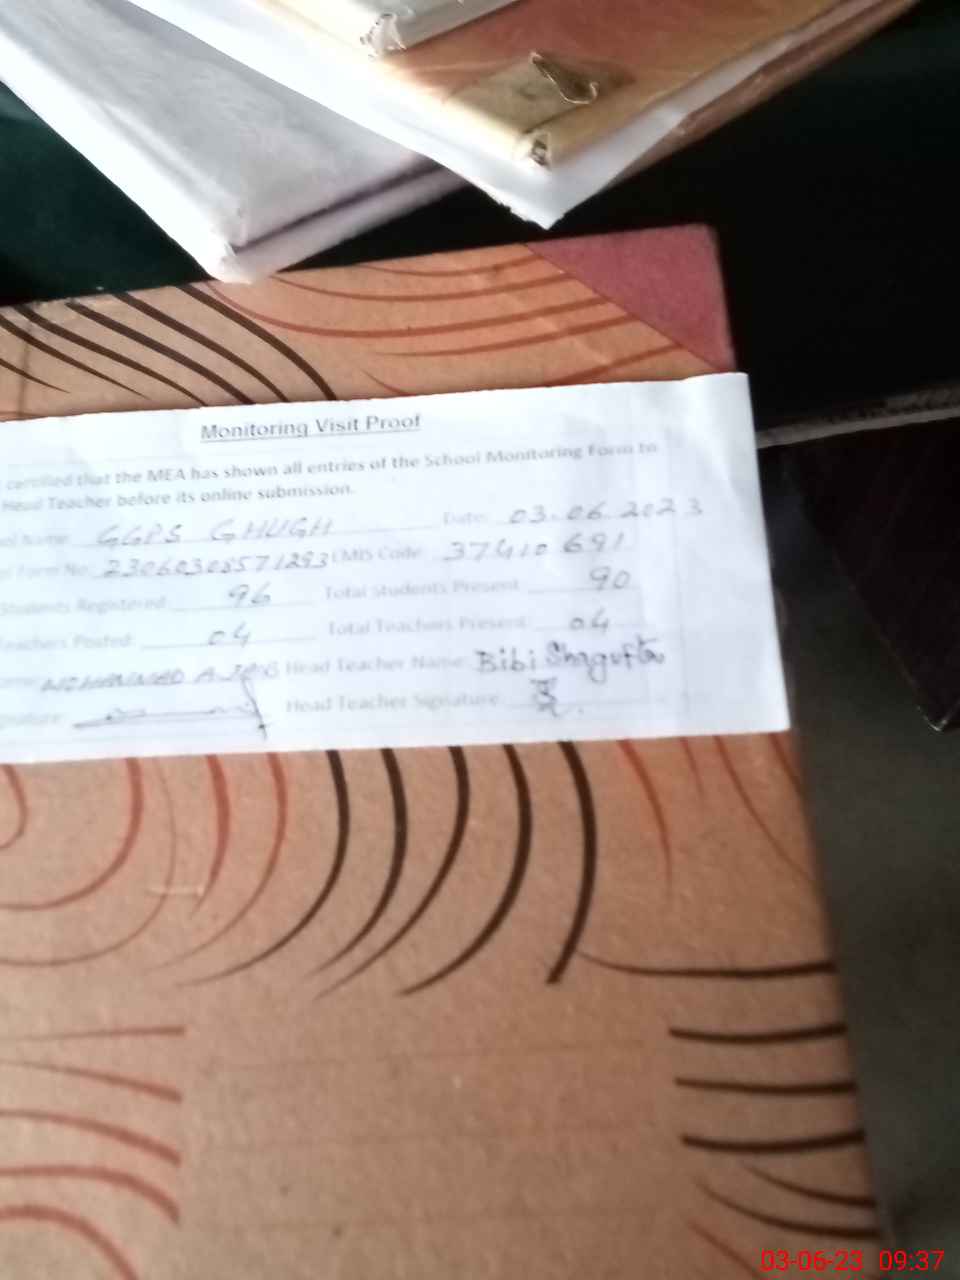 Monitoring Visit Proof
certified that the MEA has shown all entries of the School Monitoring Form to
Head Teacher before its online submission.
Name: GGPS GHUGH Date: 03.06.2023
Form No: 23060308571293 EMIS Code: 37410691
Students Registered: 96 Total Students Present: 90
Teachers Posted: 04 Total Teachers Present: 04
MOHAMMAD Head Teacher Name: Bibi Shagufta
Head Teacher Signature:
03-06-23 09:37